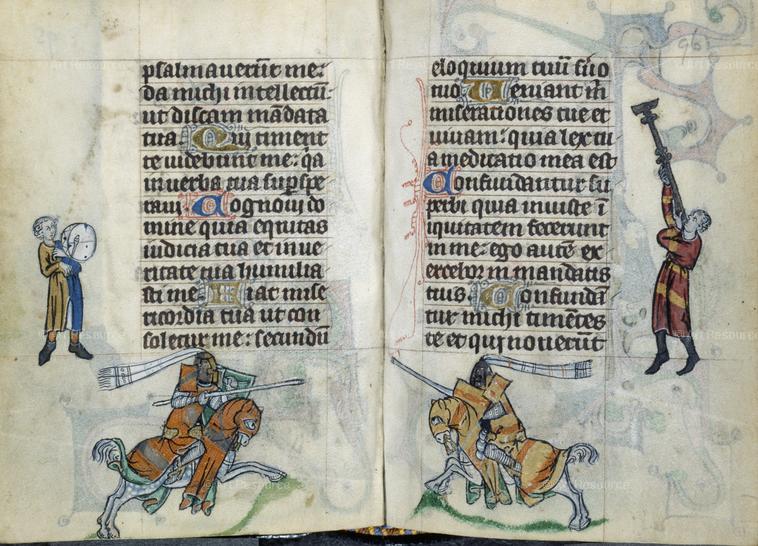 psalmauerūt me:
da michi intellectū
ut discam mādata
tua. Qui timent
te uidebunt me: q̄a
in uerba tua sup̱spe
raui. Cognoui do
mine quia equitas
iudicia tua et in ue
ritate tua humilia
sti me. Fiat mise
ricordia tua ut con
soletur me: secundū
eloquium tuū s̄uo
tuo. Ueniant m̄
miserationes tue et
uiuam: quia lex tu
a meditatio mea est
Confundantur su
perbi quia iniuste ī
iquitatem fecerunt
in me: ego autē ex
ercebor in mandatis
tuis. Conuertā
tur michi timētes
te et qui nouerūt
96